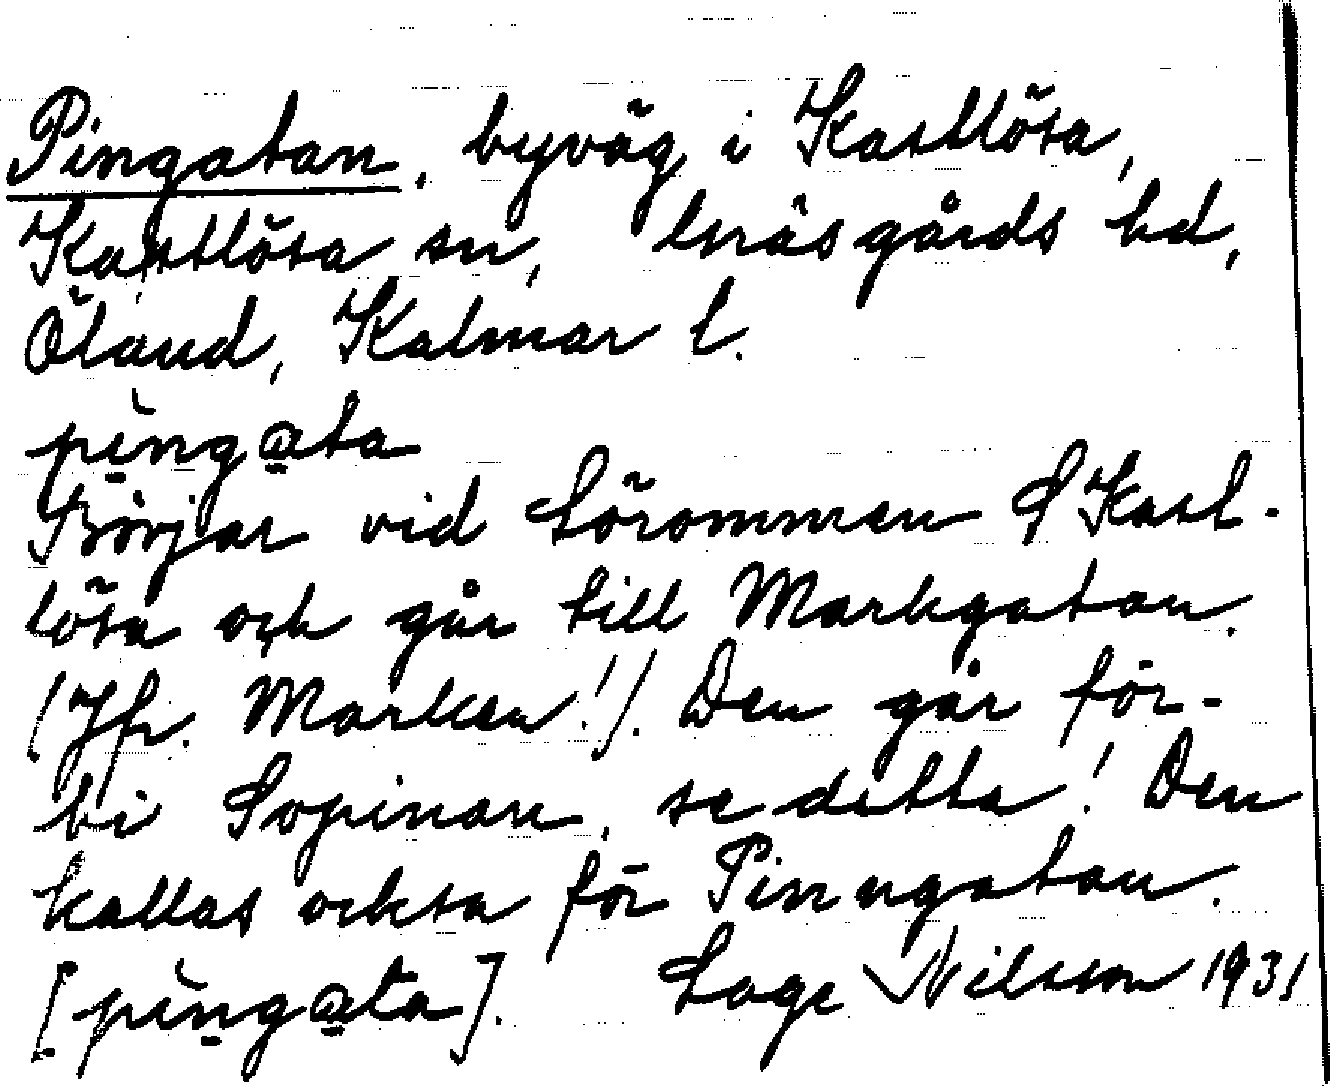 Pingatan, byväg i Kastlösa,
Kastlösa sn, Gräsgårds hd,
Öland, Kalmar l.
pìng@ta
Börjar vid Lörommen S Kast-
lösa och går till Markgatan.
(Jfr. Marken!). Den går för-
bi Sopinan, se detta! Den
kallas ocksa för Pinngatan.
[pìng@ta]. Lage Nilsson 1931